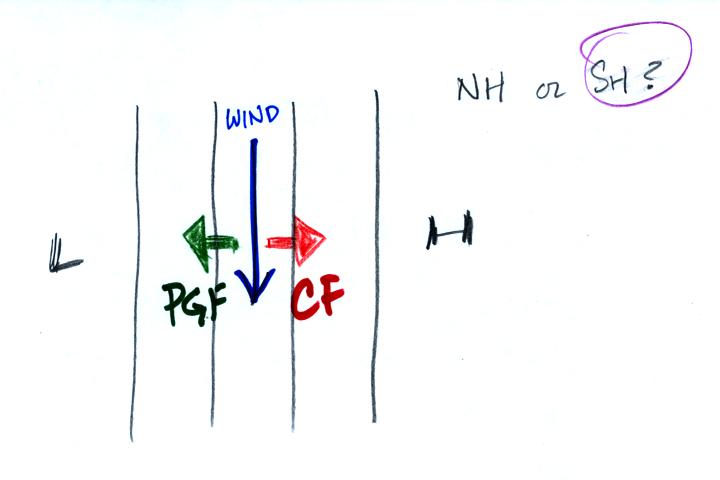 NH or SH?
WIND
L
H
PGF CF